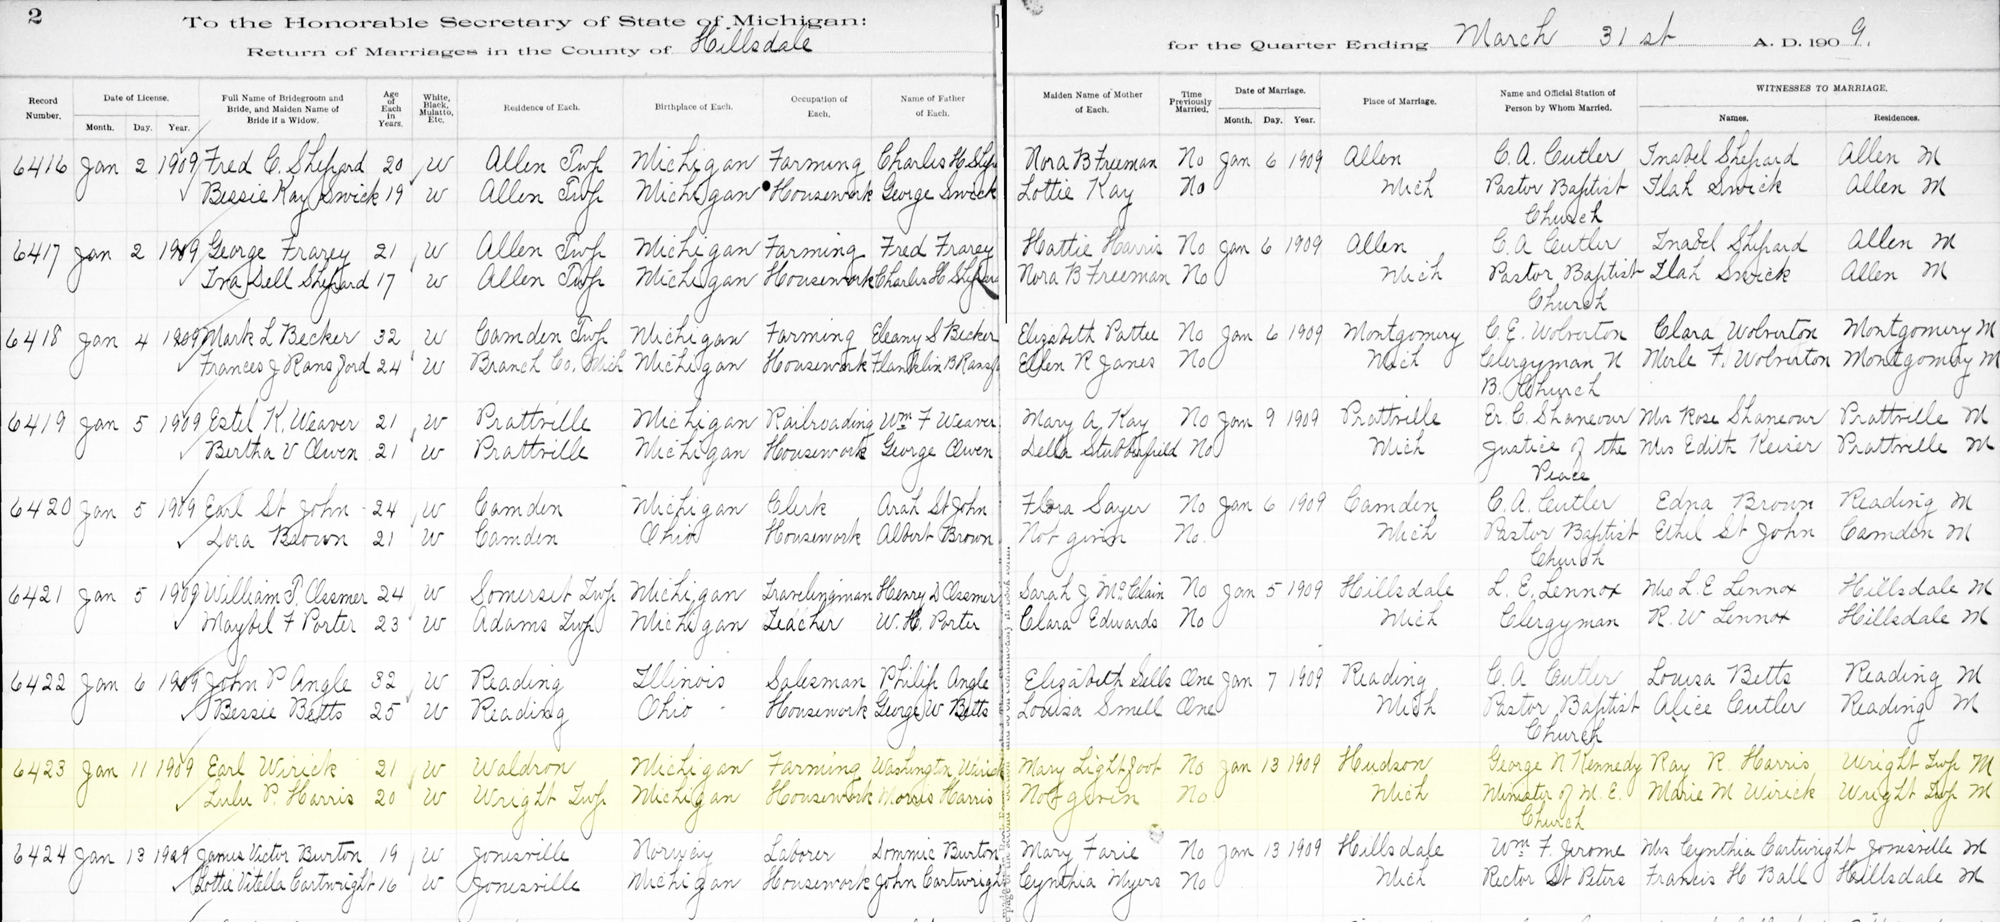 2
To the Honorable Secretary of State of Michigan:
Return of Marriages in the County of Hillsdale for the Quarter Ending March 31st A. D. 1909.
Record Number. Date of License. Month. Day. Year. Full Name of Bridegroom and Bride, and Maiden Name of Bride if a Widow. Age of Each in Years. White, Black, Mulatto, Etc. Residence of Each. Birthplace of Each. Occupation of Each. Name of Father of Each. Maiden Name of Mother of Each. Time Previously Married. Date of Marriage. Month. Day. Year. Place of Marriage. Name and Official Station of Person by Whom Married. WITNESSES TO MARRIAGE. Names. Residences.
6416 Jan 2 1909 Fred C. Shepard 20 W Allen Twp Michigan Farming Charles H Shep Nora B Freeman No Jan 6 1909 Allen C. A. Cutler Inabel Shepard Allen M
Bessie Kay Swick 19 W Allen Twp Michigan Housework George Swick Lottie Kay No Mich Pastor Baptist Ilah Swick Allen M
Church
6417 Jan 2 1909 George Frarey 21 W Allen Twp Michigan Farming Fred Frarey Hattie Harris No Jan 6 1909 Allen C. A Cutler Inabel Shepard Allen M
Ina Dell Shepard 17 W Allen Twp Michigan Housework Charles H Shepard Nora B Freeman No Mich Pastor Baptist Ilah Swick Allen M
Church
6418 Jan 4 1909 Mark L Becker 32 W Camden Twp Michigan Farming Eleany S Becker Elizabeth Pattee No Jan 6 1909 Montgomery C. E. Wolverton Clara Wolverton Montgomery M
Frances J Ransford 24 W Branch Co. Mich Michigan Housework Franklin B Ransf Ellen R Janes No Mich Clergyman U Merle F. Wolverton Montgomery M
B. Church
6419 Jan 5 1909 Estel K. Weaver 21 W Prattville Michigan Railroading Wm F Weaver Mary A Kay No Jan 9 1909 Prattville Er. C. Shaneour Mr Rose Shaneour Prattville M
Bertha V Owen 21 W Prattville Michigan Housework George Owen Della Stubberfield No Mich Justice of the Mrs Edith Keiser Prattville M
Peace
6420 Jan 5 1909 Earl St John 24 W Camden Michigan Clerk Arah St John Flora Sayer No Jan 6 1909 Camden C. A. Cutler Edna Brown Reading M
Dora Brown 21 W Camden Ohio Housework Albert Brown Not given No. Mich Pastor Baptist Ethel St John Camden M
Church
6421 Jan 5 1909 William P. Assmer 24 W Somerset Twp Michigan Travelingman Henry D Assmer Sarah J McClain No Jan 5 1909 Hillsdale L. E. Lennox Mrs L. E Lennox Hillsdale M
Maybel F Porter 23 W Adams Twp Michigan Teacher W. H. Porter Clara Edwards No Mich Clergyman R. W Lennox Hillsdale M
6422 Jan 6 1909 John P Angle 32 W Reading Illinois Salesman Philip Angle Elizabeth Sells One Jan 7 1909 Reading C. A Cutler Louisa Betts Reading M
Bessie Betts 25 W Reading Ohio Housework George W Betts Louisa Smell One Mich Pastor Baptist Alice Cutler Reading M
Church
6423 Jan 11 1909 Earl Wirick 21 W Waldron Michigan Farming Washington Wirick Mary Lightfoot No Jan 13 1909 Hudson George N Kennedy Ray R. Harris Wright Twp M
Lulu P. Harris 20 W Wright Twp Michigan Housework Morris Harris Not given No. Mich Minister of M. E. Marie M Wirick Wright Twp M
Church
6424 Jan 13 1909 James Victor Burton 19 W Jonesville Norway Laborer Dommic Burton Mary Farie No Jan 13 1909 Hillsdale Wm F. Jerome Mrs Cynthia Cartwright Jonesville M
Lottie Vitella Cartwright 16 W Jonesville Michigan Housework John Cartwright Cynthia Myers No Mich Rector St Peters Francis H Ball Hillsdale M